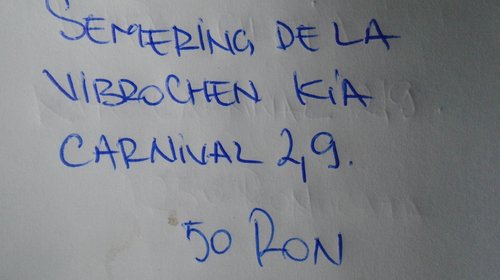 SEMERING DE LA
VIBROCHEN KIA
CARNIVAL 2,9.
50 RON